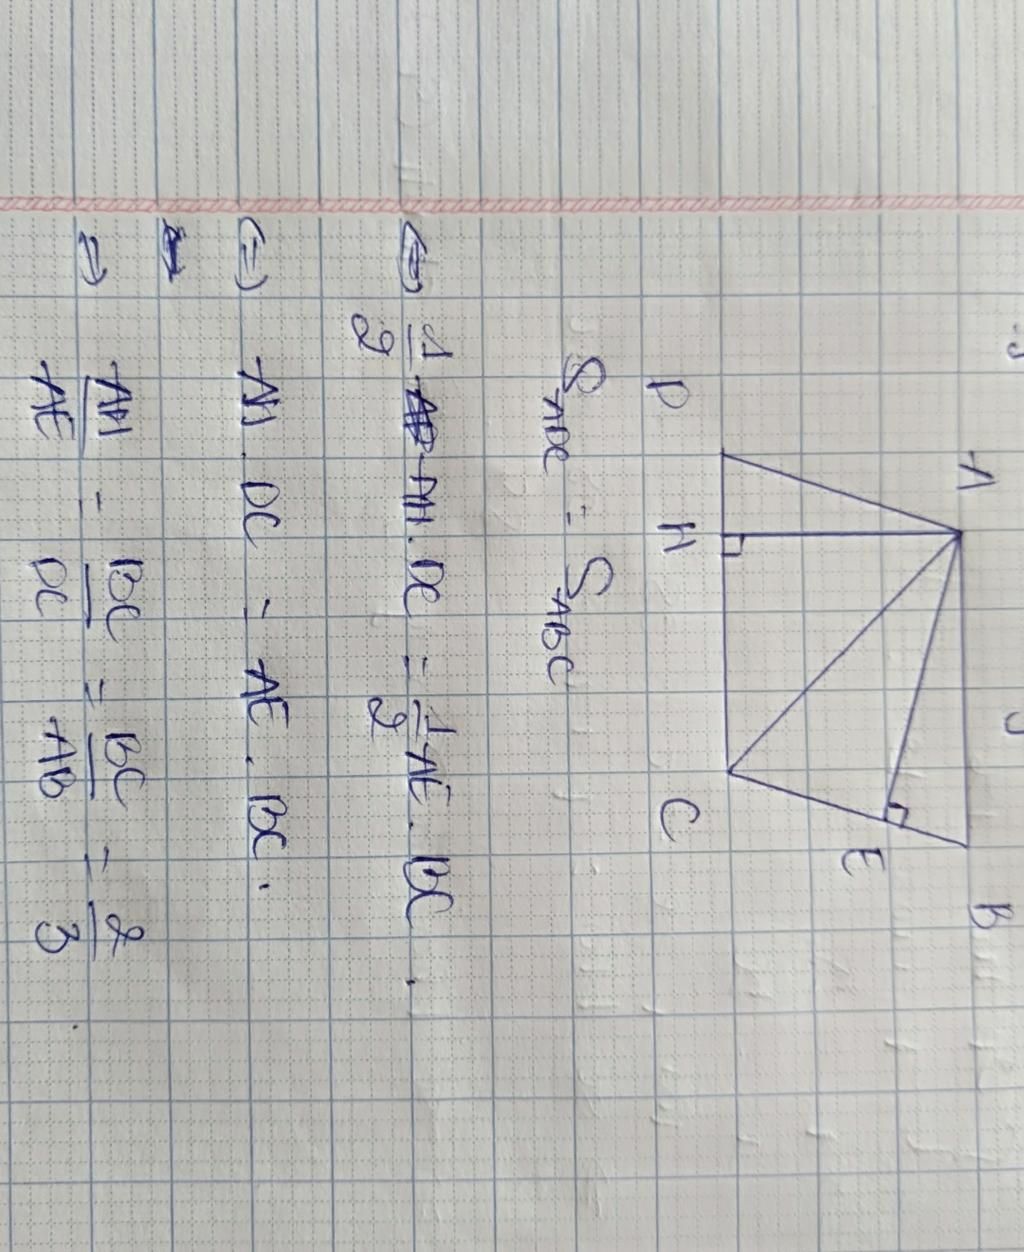 A B
E
D H C
S_ADC = S_ABC
⇔ 1/2 AH . DC = 1/2 AE . BC .
⇔ AH . DC = AE . BC .
⇒ AH/AE = BC/DC = BC/AB = 2/3 .